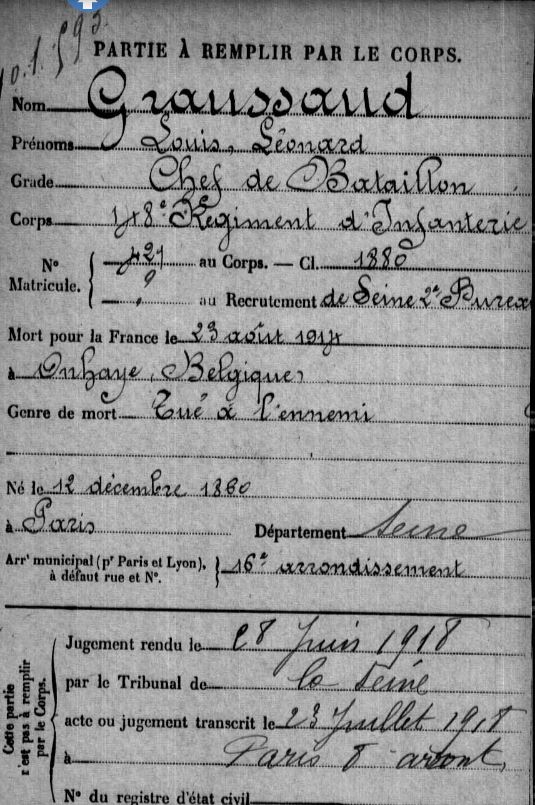 PARTIE À REMPLIR PAR LE CORPS.
Nom Graussaud
Prénoms Louis, Léonard
Grade Chef de Bataillon
Corps 148e Régiment d'Infanterie
N° Matricule. { 421 au Corps. — Cl. 1880
? au Recrutement de Seine 2e Bureau
Mort pour la France le 23 août 1914
à Onhaye (Belgique)
Genre de mort Tué à l'ennemi
Né le 12 décembre 1860
à Paris Département Seine
Arrt municipal (pr Paris et Lyon), à défaut rue et N°. } 16e arrondissement
Cette partie n'est pas à remplir par le Corps.
Jugement rendu le 28 Juin 1918
par le Tribunal de la Seine
acte ou jugement transcrit le 23 Juillet 1918
à Paris 8 arront
N° du registre d'état civil